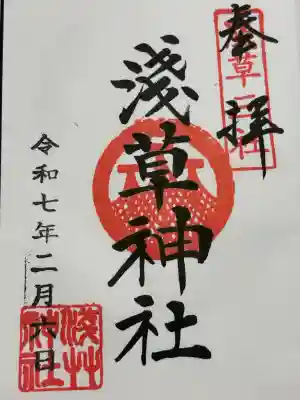 奉拝
淺草神社
令和七年二月六日
淺草神社